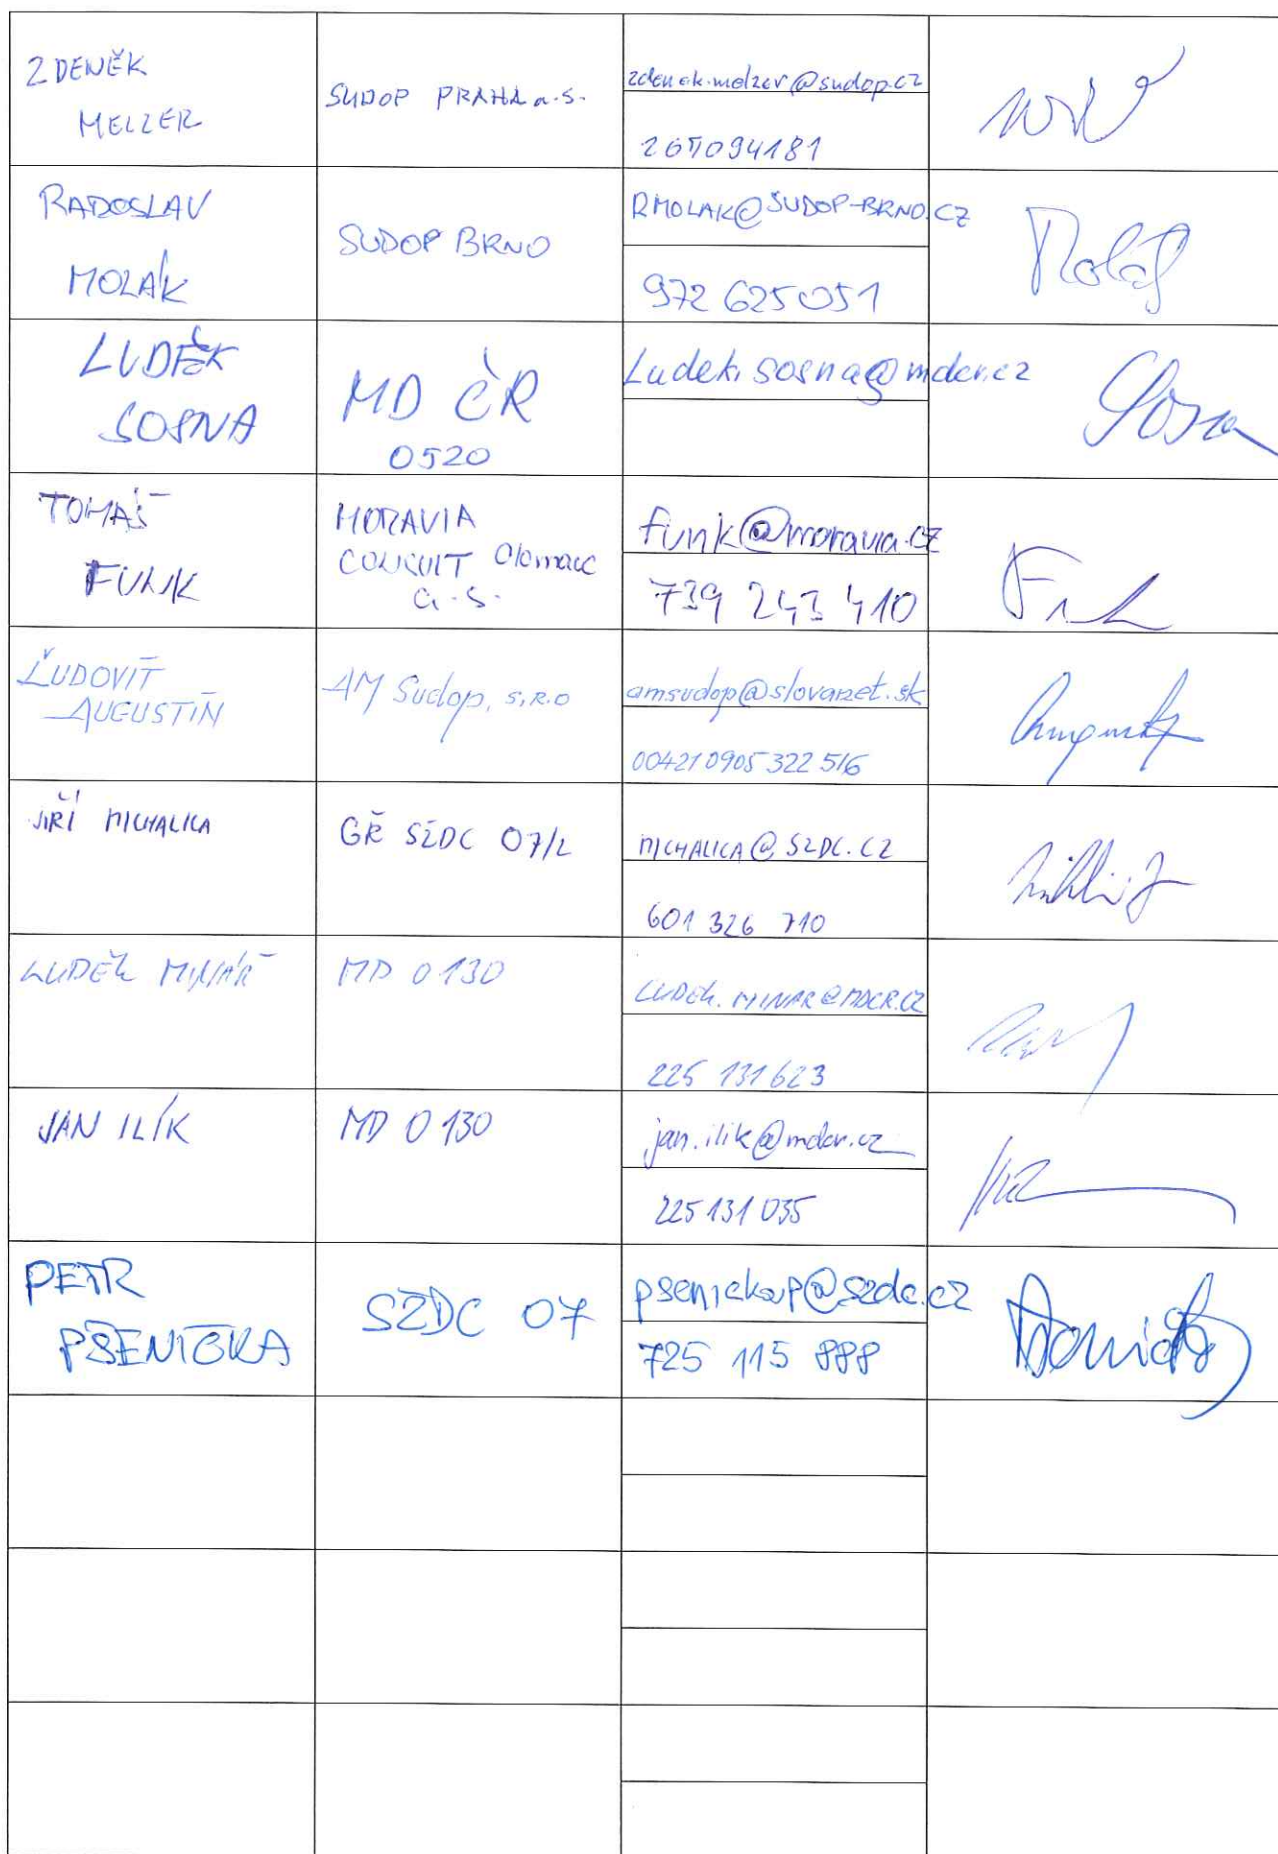 ZDENĚK
MELZER
SUDOP PRAHA a.s.
zdenek.melzer@sudop.cz
267094181
RADOSLAV
MOLÁK
SUDOP BRNO
RMOLAK@SUDOP-BRNO.CZ
972 625 051
LUDĚK
SOSNA
MD ČR
0520
Ludek.sosna@mdcr.cz
TOMÁŠ
FUNK
MORAVIA
CONSULT Olomouc
a.s.
funk@moravia.cz
739 243 410
ĽUDOVÍT
AUGUSTÍN
AM Sudop, s.r.o
amsudop@slovanet.sk
00421 0905 322 516
JIŘÍ MICHALICA
GŘ SŽDC 07/2
MICHALICA@SZDC.CZ
601 326 710
LUDĚK MINÁŘ
MD 0130
LUDEK.MINAR@MDCR.CZ
225 131 623
JAN ILÍK
MD 0130
jan.ilik@mdcr.cz
225 131 035
PETR
PŠENIČKA
SŽDC 07
psenickap@szdc.cz
725 115 888